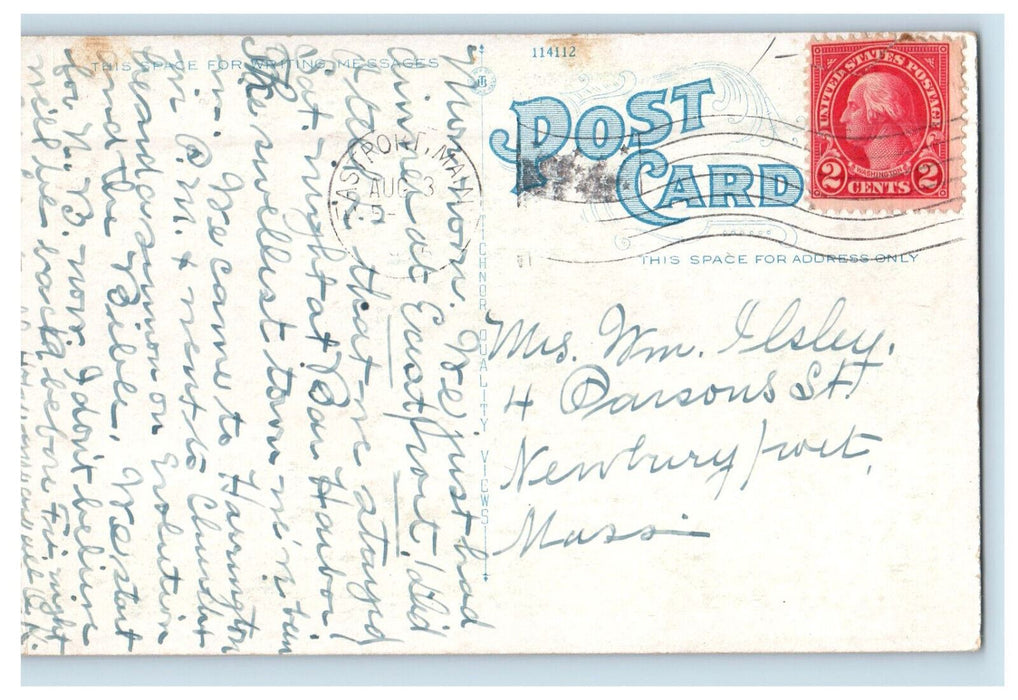 114112
THIS SPACE FOR WRITING MESSAGES
POST CARD
THIS SPACE FOR ADDRESS ONLY
UNITED STATES POSTAGE
WASHINGTON
2 CENTS 2
EASTPORT, MAINE
AUG 3
TICHNOR QUALITY VIEWS
Mrs. Wm. Ilsley,
4 Parsons St.
Newburyport,
Mass.
Mon. noon. We just had
dinner at Eastport. Did
I tell that we stayed
Sat. night at Bar Harbor!
The swellest town we'v been
in. We came to Harrington
in P.M. & went to Church
heard a sermon on Evolution
and the Bible. We start
for N. B. now I don't believe
will be back before Fri. night